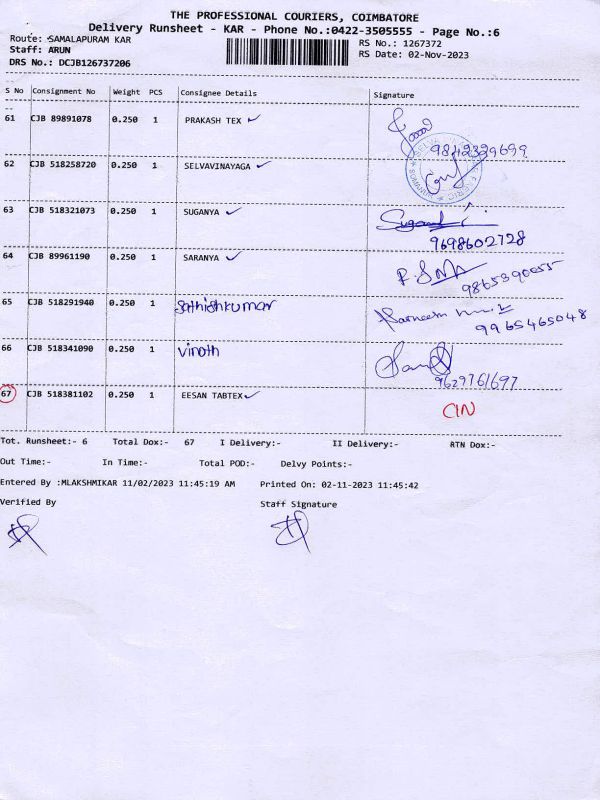 THE PROFESSIONAL COURIERS, COIMBATORE
Delivery Runsheet - KAR - Phone No.:0422-3505555 - Page No.:6
Route: SAMALAPURAM KAR RS No.: 1267372
Staff: ARUN RS Date: 02-Nov-2023
DRS No.: DCJB126737206
S No Consignment No Weight PCS Consignee Details Signature
61 CJB 89891078 0.250 1 PRAKASH TEX
9842329699
62 CJB 518258720 0.250 1 SELVAVINAYAGA
63 CJB 518321073 0.250 1 SUGANYA
9698602728
64 CJB 89961190 0.250 1 SARANYA
9865390055
65 CJB 518291940 0.250 1 Sathishkumar
9965465048
66 CJB 518341090 0.250 1 Vinoth
9629761697
67 CJB 518381102 0.250 1 EESAN TABTEX
CIN
Tot. Runsheet:- 6 Total Dox:- 67 I Delivery:- II Delivery:- RTN Dox:-
Out Time:- In Time:- Total POD:- Delvy Points:-
Entered By :MLAKSHMIKAR 11/02/2023 11:45:19 AM Printed On: 02-11-2023 11:45:42
Verified By Staff Signature